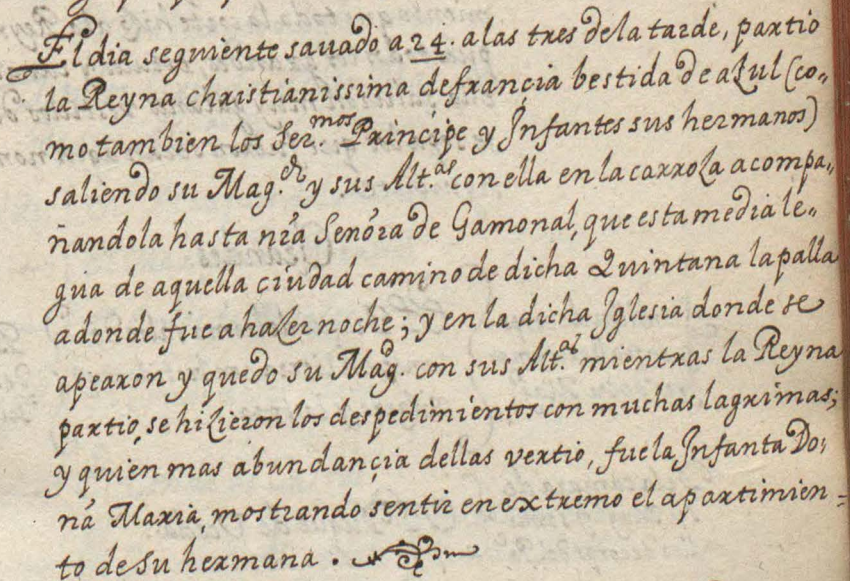 El dia seguiente sauado a 24. a las tres de la tarde, partio
la Reyna christianissima de francia bestida de aZul (co-
mo tambien los Ser.mos Principe y Infantes sus hermanos)
saliendo su Mag.d y sus Alt.as con ella en la carroZa acompa-
ñandola hasta nr̃a Señora de Gamonal, que esta media le-
gua de aquella ciudad camino de dicha Quintana la palla
adonde fue a haZer noche; y en la dicha Iglesia donde se
apearon y quedo su Magd. con sus Alt.as mientras la Reyna
partio, se hiZieron los despedimientos con muchas lagrimas;
y quien mas abundançia dellas vertio, fue la Infanta Do-
ña Maria, mostrando sentir en extremo el apartimien=
to de su hermana.